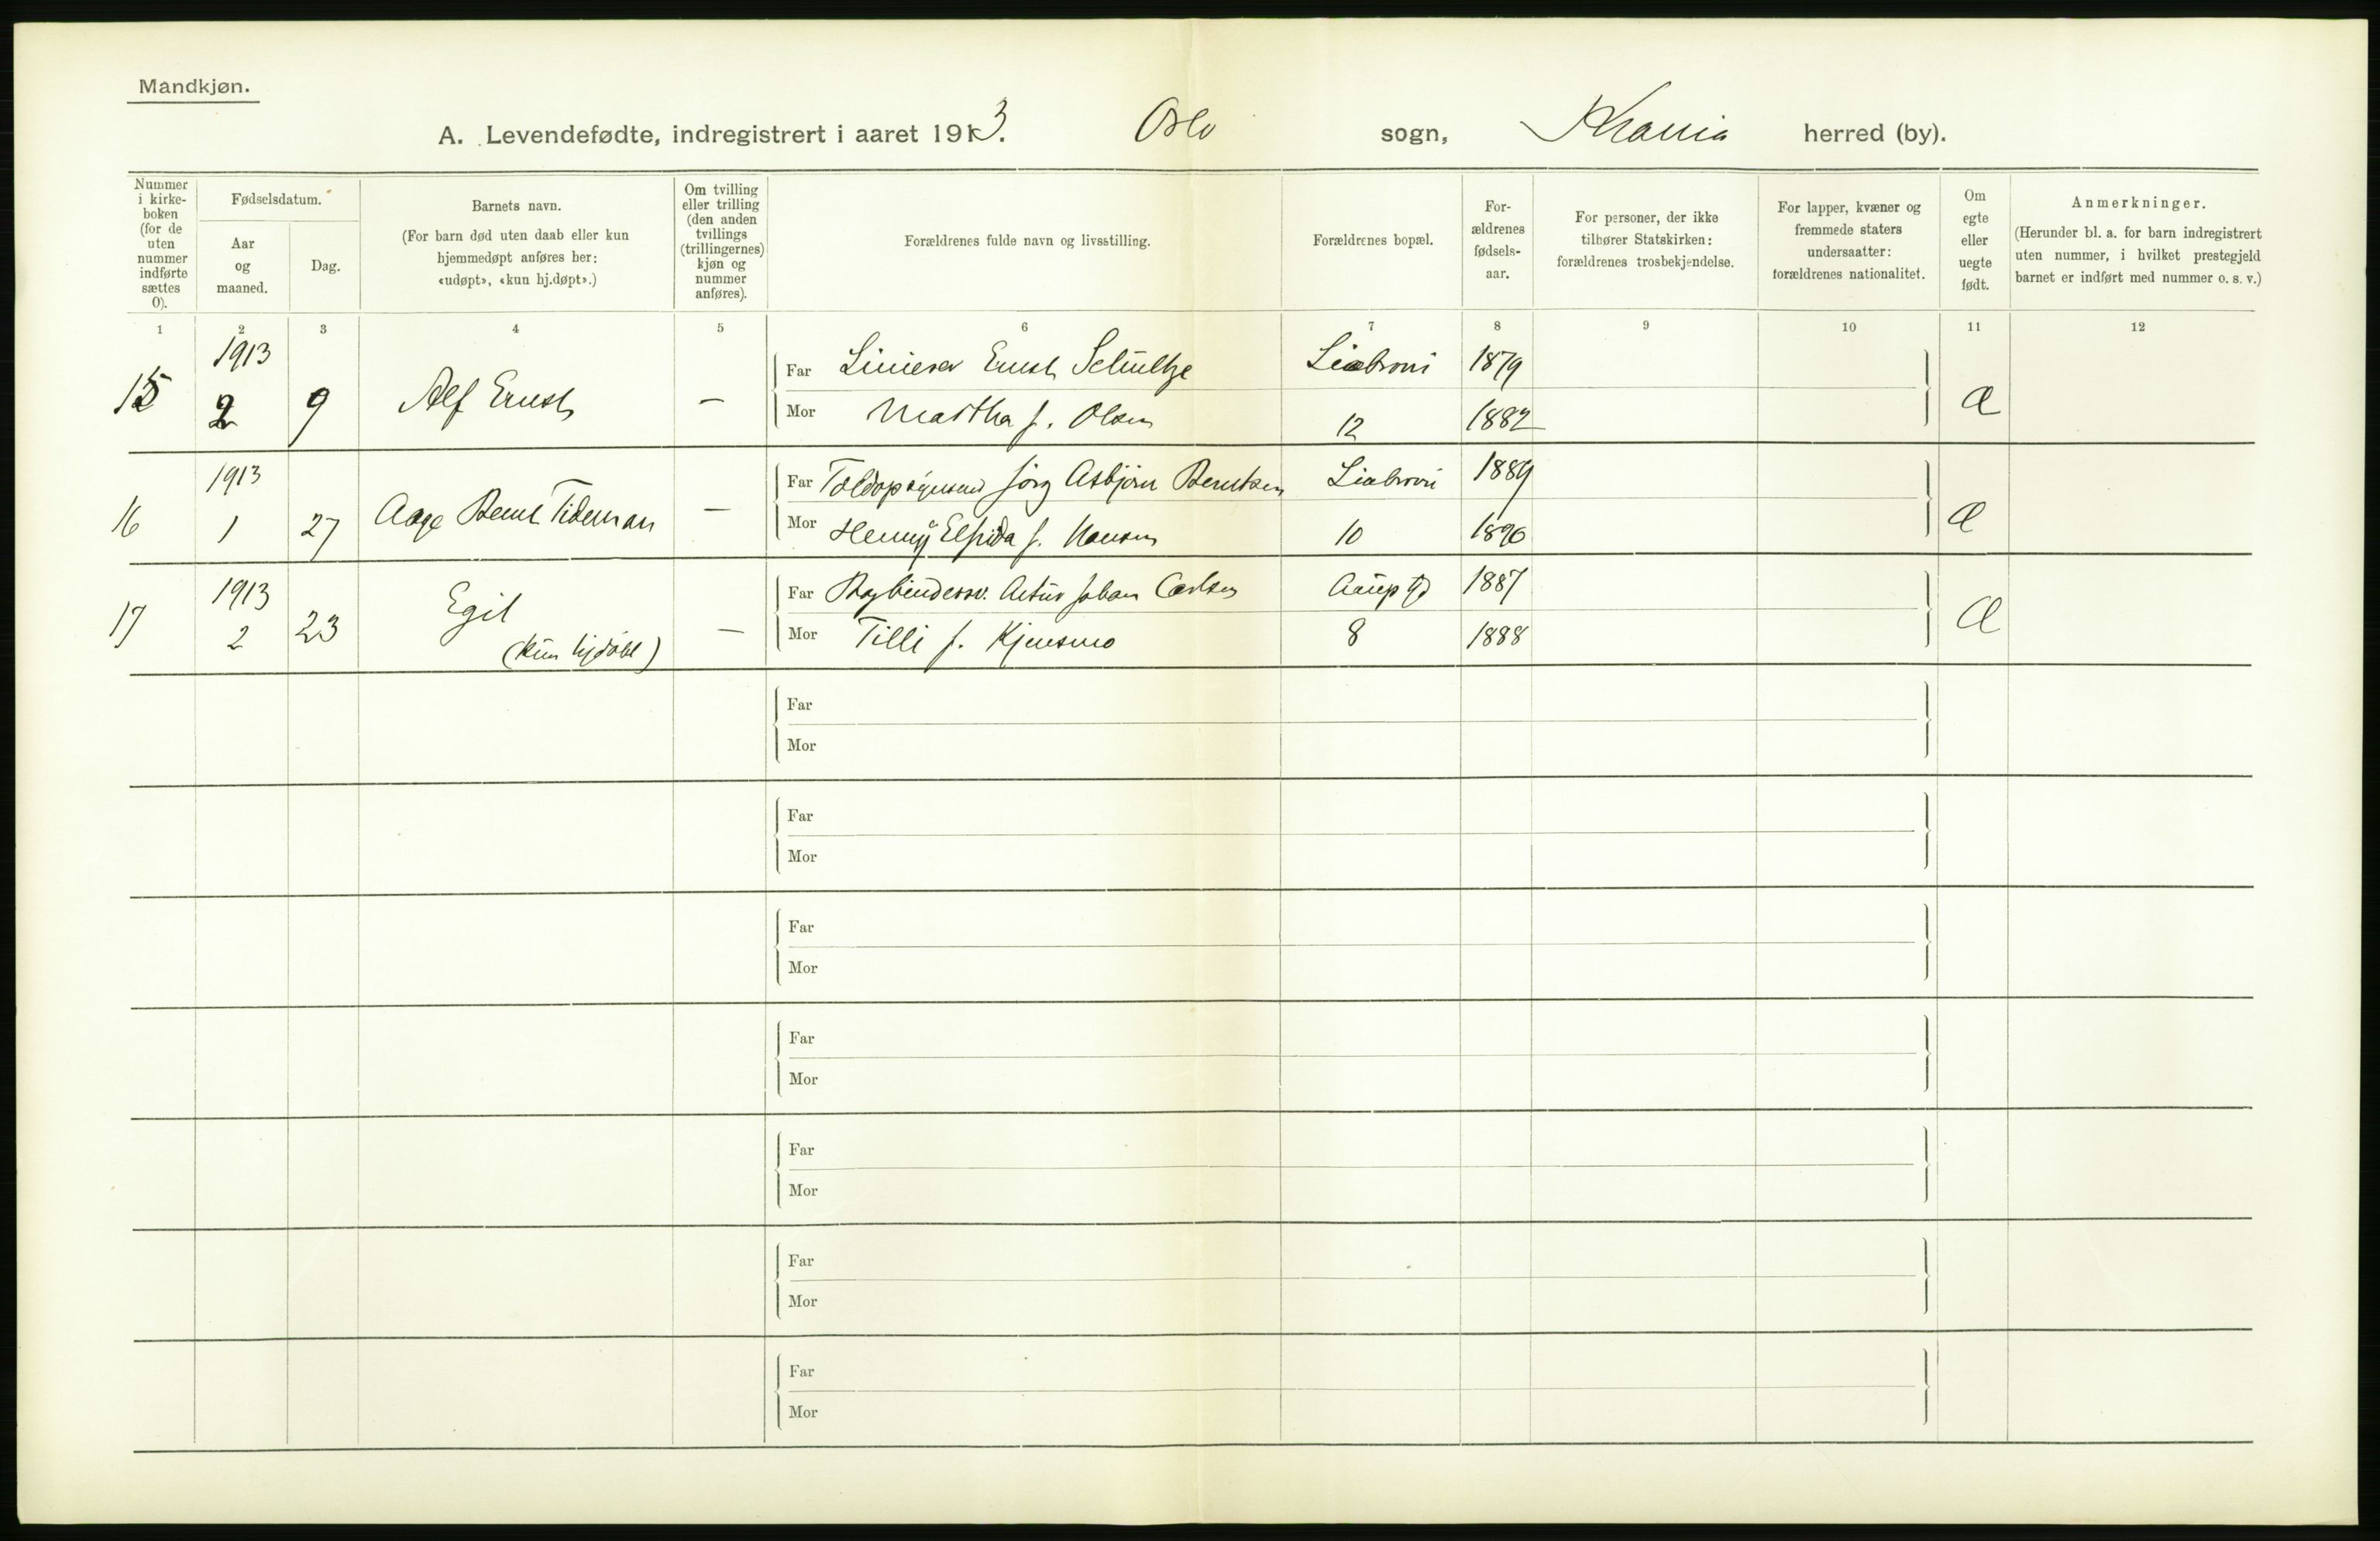 Mandkjøn.
A. Levendefødte, indregistrert i aaret 1913. Oslo sogn, Krania herred (by).
Nummer i kirke-boken (for de uten nummer indførte sættes 0).
Fødselsdatum.
Aar og maaned.
Dag.
Barnets navn.
(For barn død uten daab eller kun hjemmedøpt anføres her: «udøpt», «kun hj.døpt».)
Om tvilling eller trilling (den anden tvillings (trillingernes) kjøn og nummer anføres).
Forældrenes fulde navn og livsstilling.
Forældrenes bopæl.
For-ældrenes fødsels-aar.
For personer, der ikke tilhører Statskirken: forældrenes trosbekjendelse.
For lapper, kvæner og fremmede staters undersaatter: forældrenes nationalitet.
Om egte eller uegte født.
Anmerkninger.
(Herunder bl. a. for barn indregistrert uten nummer, i hvilket prestegjeld barnet er indført med nummer o. s. v.)
1 2 3 4 5 6 7 8 9 10 11 12
15 1913 2 9 Alf Ernst —
Far Linierer Ernst Schultze Liabrovei 1879
Mor Martha f. Olsen 12 1882
Æ
16 1913 1 27 Aage Bernt Tideman —
Far Toldopsynsmd Jörg Asbjörn Berntsen Liabrovei 1889
Mor Henny Elfrida f. Hansen 10 1890
Æ
17 1913 2 23 Egil (kun hjdøbt) —
Far Bogbindersv. Artur Johan Carlsen 1887
Mor Tilli f. Kjensmo 8 1888
Æ
Far
Mor
Far
Mor
Far
Mor
Far
Mor
Far
Mor
Far
Mor
Far
Mor